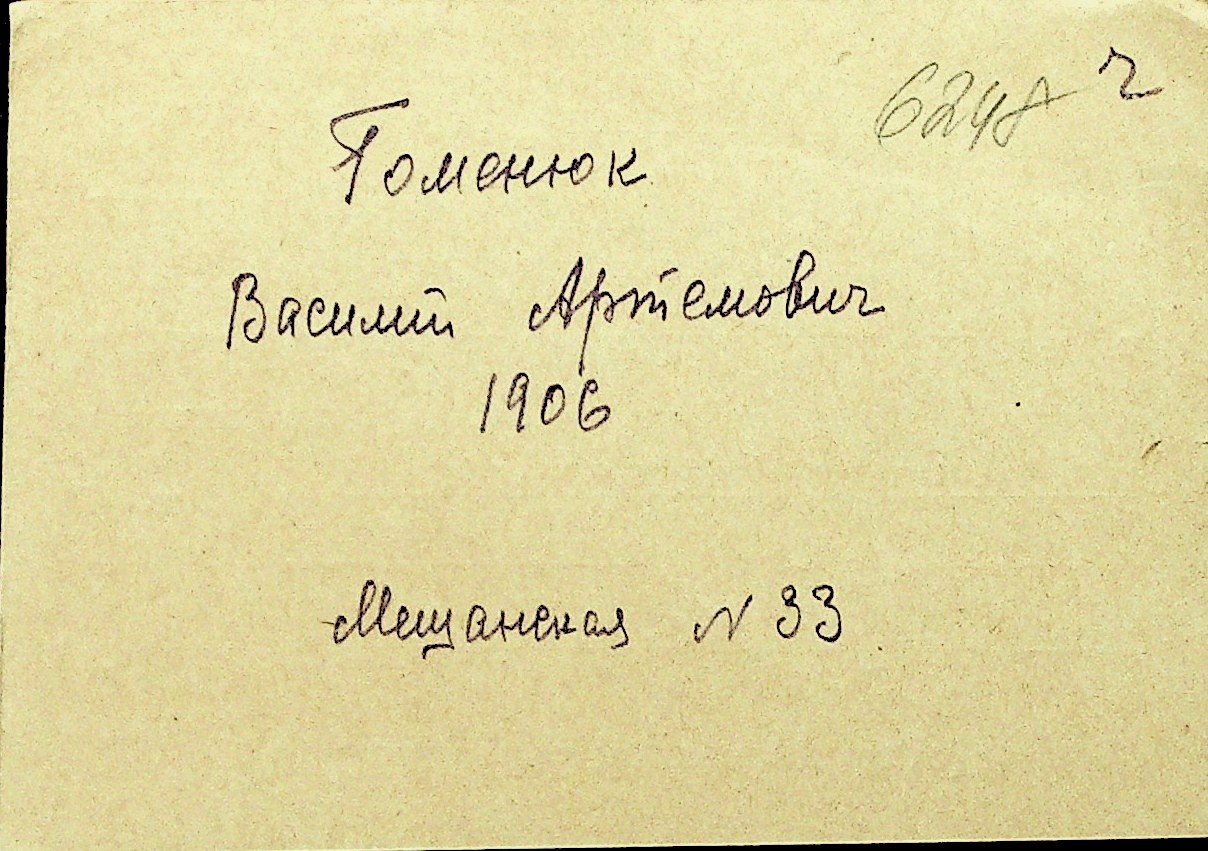 ч
Гоменюк
Василий Артемович
1906
Мещанская N 33